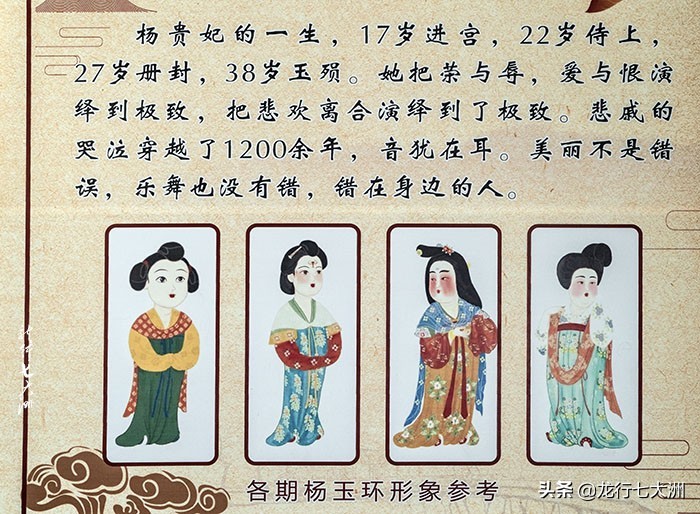 杨贵妃的一生，17岁进宫，22岁侍上，
27岁册封，38岁玉殒。她把荣与辱，爱与恨演
绎到极致，把悲欢离合演绎到了极致。悲戚的
哭泣穿越了1200余年，音犹在耳。美丽不是错
误，乐舞也没有错，错在身边的人。
各期杨玉环形象参考
头条@龙行七大洲